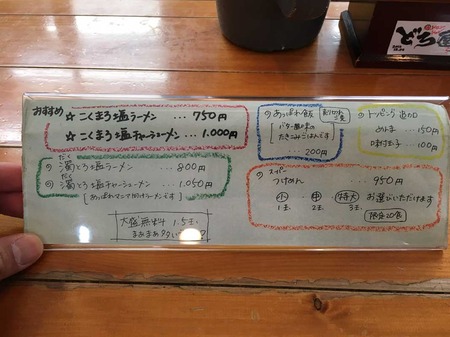 おすすめ
☆ こくまろ塩ラーメン ... 750円
☆ こくまろ塩チャーシューメン ... 1.000円
だく
濁とろ塩ラーメン ... 800円
だく
濁とろ塩チャーシューメン ... 1.050円
大盛無料 1.5玉
まあまあ多い
あっぱれ飯
バター風味の
たきこみごはんです
... 200円
トッピング 追加
めんま ... 150円
味付玉子 ... 100円
スーパー
つけめん ... 950円
小 中 特大 お選びいただけます
1玉 2玉 3玉
限定20食
どろ